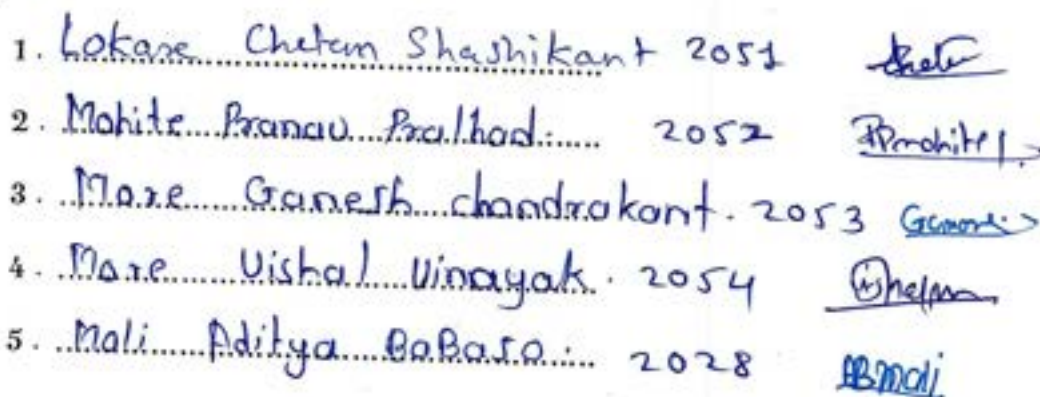 1. Lokare Chetan Shashikant 2051
2. Mohite Pranav Pralhad. 2052 PPmohite
3. More Ganesh chandrakant. 2053 Gcmore
4. More Vishal Vinayak. 2054
5. Mali Aditya BaBaso. 2028 ABMali